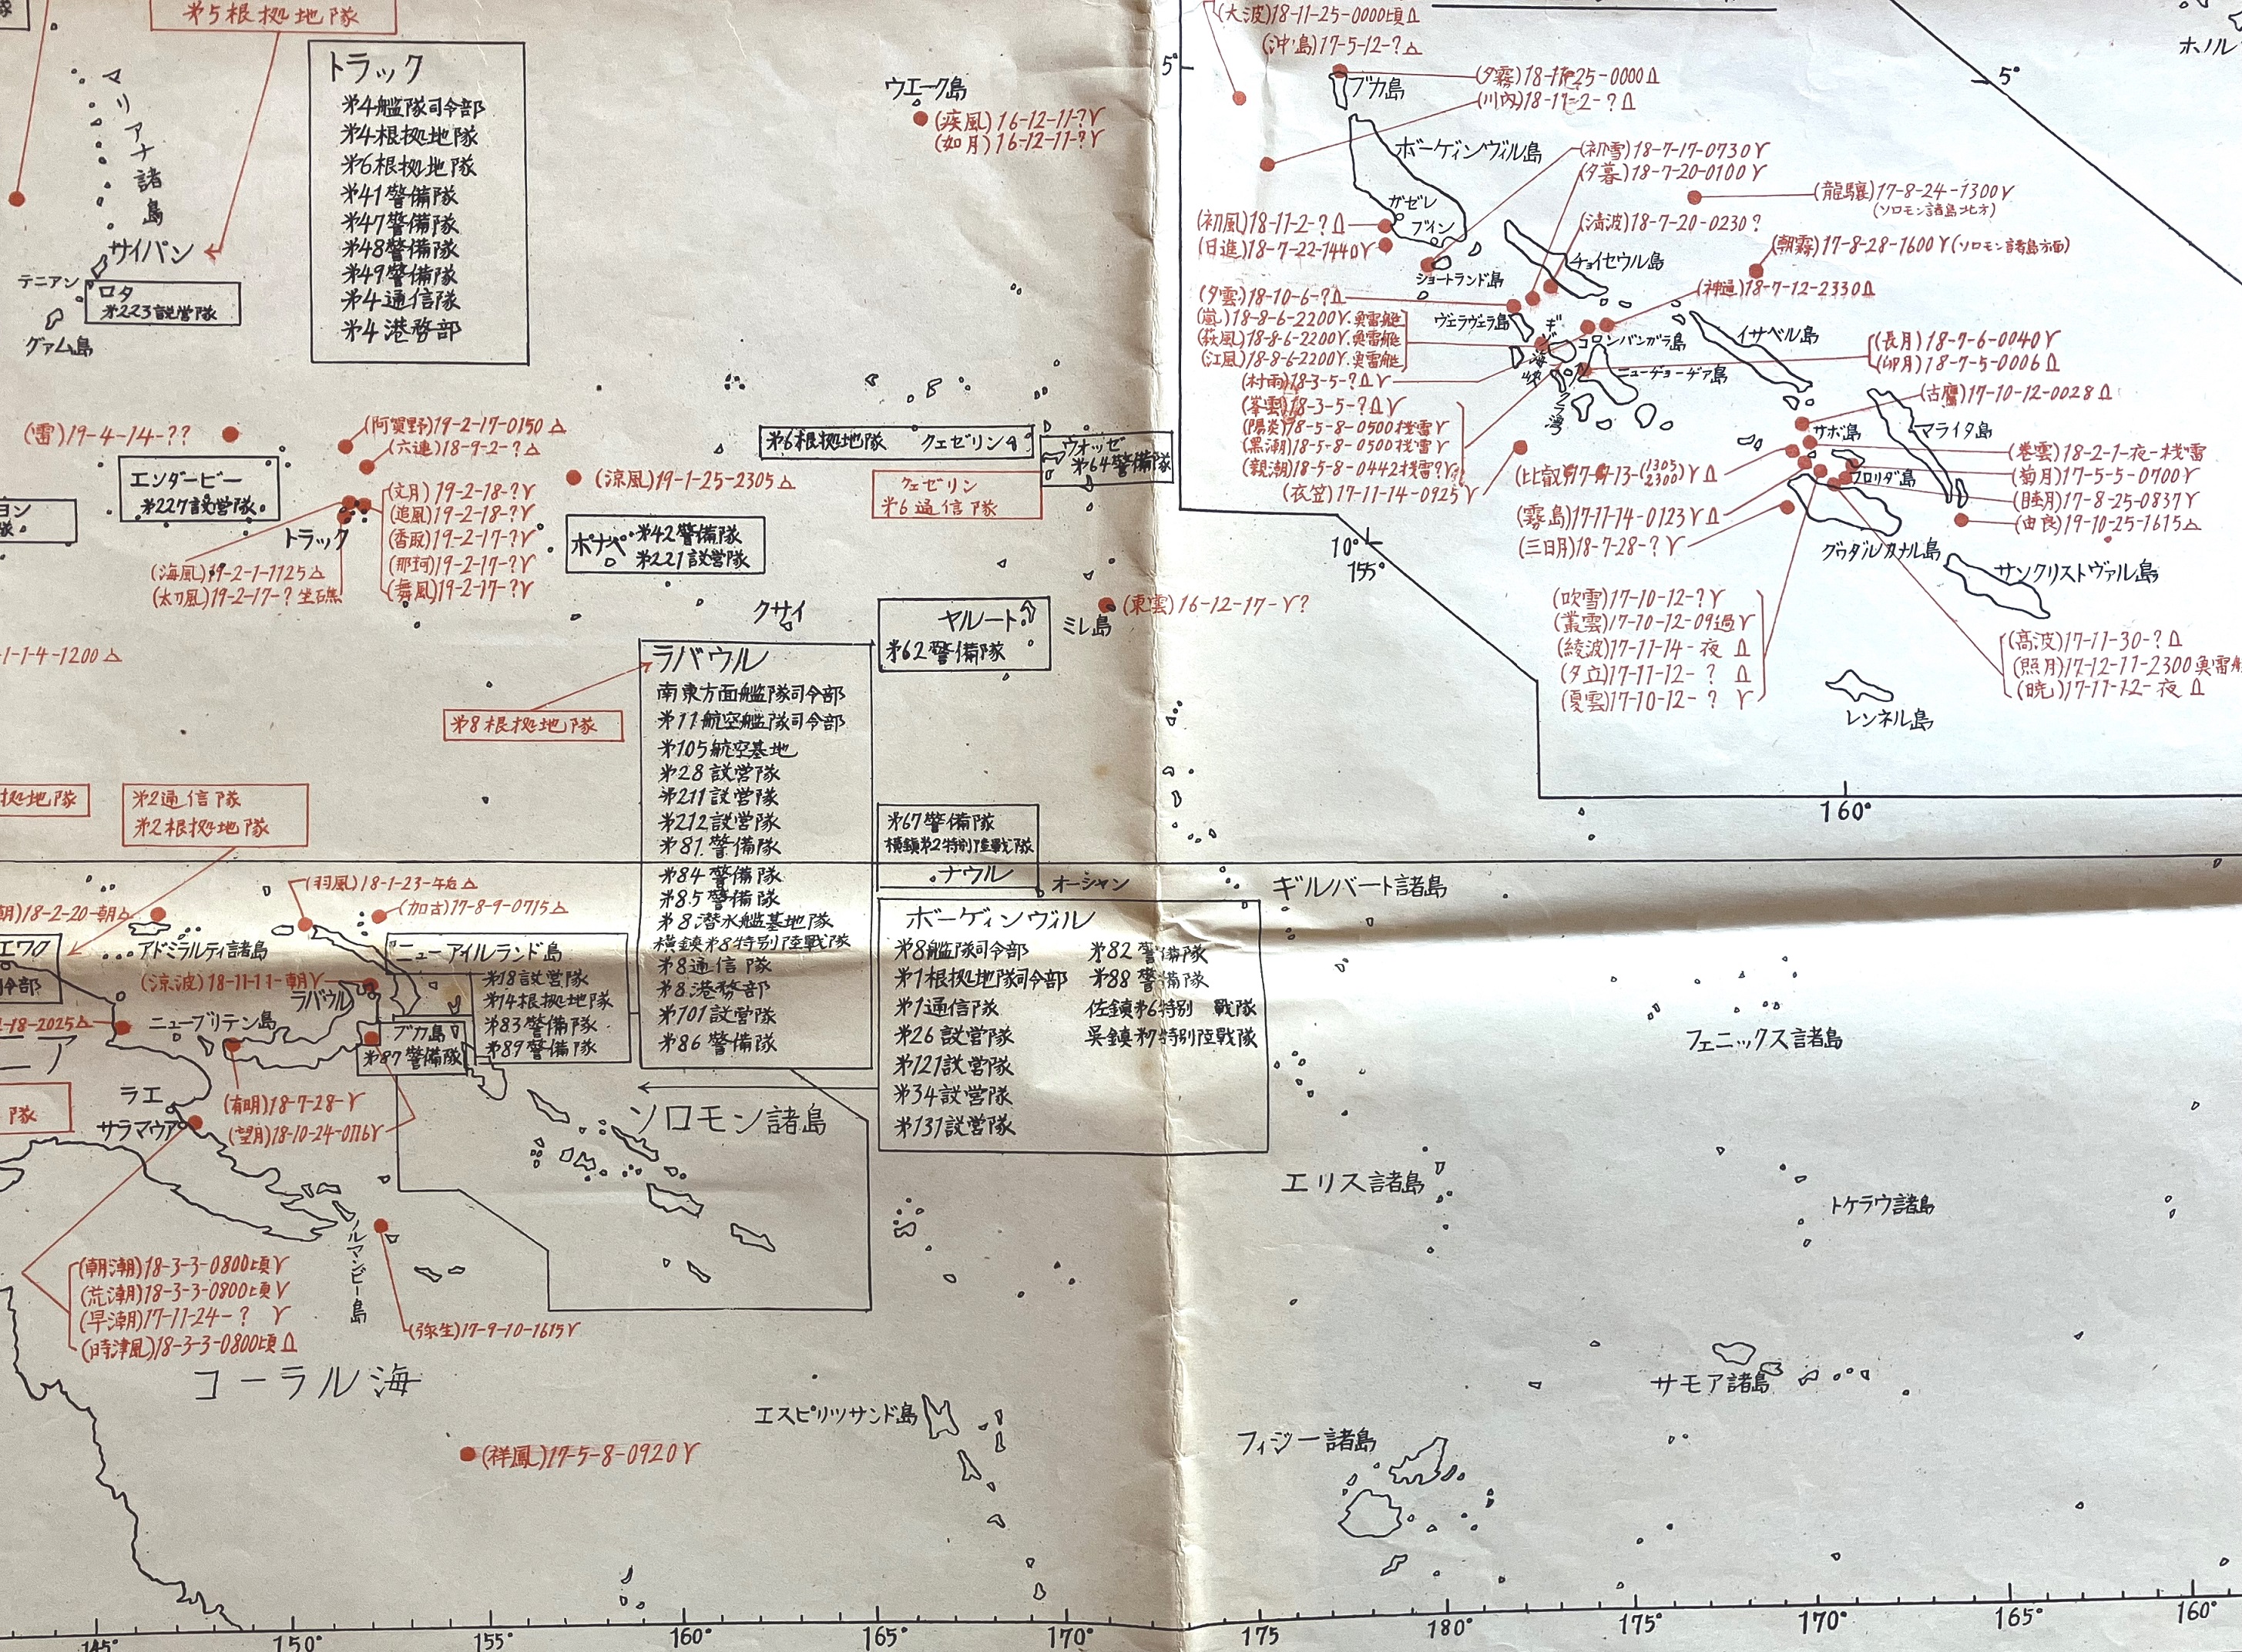 第5根拠地隊
トラック
第4艦隊司令部
第4根拠地隊
第6根拠地隊
第41警備隊
第47警備隊
第48警備隊
第49警備隊
第4通信隊
第4港務部
マリアナ諸島
サイパン
テニアン
ロタ
第223設営隊
グァム島
ウエーク島
(疾風)16-12-11-?Y
(如月)16-12-11-?Y
(雷)19-4-14-??
(阿賀野)19-2-17-0150△
(六連)18-9-2-?△
エンダービー
第227設営隊
トラック
(文月)19-2-18-?Y
(追風)19-2-18-?Y
(香取)19-2-17-?Y
(那珂)19-2-17-?Y
(舞風)19-2-17-?Y
(海風)19-2-1-1125△
(太刀風)19-2-17-?坐礁
(涼風)19-1-25-2305△
ポナペ
第42警備隊
第221設営隊
第6根拠地隊 クェゼリン
ウオッゼ
第64警備隊
クェゼリン
第6通信隊
クサイ
ヤルート
第62警備隊
ミレ島
(東雲)16-12-17-Y?
1-1-4-1200△
第8根拠地隊
ラバウル
南東方面艦隊司令部
第11航空艦隊司令部
第105航空基地
第28設営隊
第211設営隊
第212設営隊
第81警備隊
第84警備隊
第85警備隊
第8潜水艦基地隊
横鎮第8特別陸戦隊
第8通信隊
第8港務部
第101設営隊
第86警備隊
第67警備隊
横鎮第2特別陸戦隊
ナウル
オーシャン
拠地隊
第2通信隊
第2根拠地隊
(羽風)18-1-23-午后△
(加古)17-8-9-0715△
朝)18-2-20-朝△
アドミラルティ諸島
(涼波)18-11-11-朝Y
ラバウル
ニューアイルランド島
第18設営隊
第14根拠地隊
第83警備隊
第89警備隊
ニューブリテン島
ブカ島
第87警備隊
エワク
令部
-18-2025△
ニア
隊
ラエ
サラマウア
(有明)18-7-28-Y
(望月)18-10-24-0716Y
ボーゲィンヴィル
第8艦隊司令部
第1根拠地隊司令部
第1通信隊
第26設営隊
第121設営隊
第34設営隊
第131設営隊
第82警備隊
第88警備隊
佐鎮第6特別 戰隊
呉鎮第7特別陸戰隊
ソロモン諸島
ノルマンビー島
(朝潮)18-3-3-0800頃Y
(荒潮)18-3-3-0800頃Y
(早潮)17-11-24-? Y
(時津風)18-3-3-0800頃Δ
(弥生)17-9-10-1615Y
コーラル海
(祥鳳)17-5-8-0920Y
エスピリツサンド島
ギルバート諸島
フェニックス諸島
エリス諸島
トケラウ諸島
サモア諸島
フィジー諸島
145°
150°
155°
160°
165°
170°
175
180°
175°
170°
165°
160°
(大波)18-11-25-0000頃Δ
(沖島)17-5-12-?△
5°
ブカ島
(川内)18-11-2-?Δ
5°
ホノル
ボーゲィンヴィル島
(初雪)18-7-17-0730Y
(夕暮)18-7-20-0100Y
(龍驤)17-8-24-1300Y
(ソロモン諸島地方)
ガゼレ
ブイン
(初風)18-11-2-?Δ
(日進)18-7-22-1440Y
(清波)18-7-20-0230?
(朝霧)17-8-28-1600Y(ソロモン諸島方面)
ショートランド島
チョイセウル島
(神通)18-7-12-2330Δ
(夕雲)18-10-6-?Δ
(嵐)18-8-6-2200Y.魚雷艇
(萩風)18-8-6-2200Y.魚雷艇
(江風)18-8-6-2200Y.魚雷艇
ヴェラヴェラ島
ギゾ海峡
コロンバンガラ島
イサベル島
(長月)18-7-6-0040Y
(卯月)18-7-5-0006Δ
(村雨)18-3-5-?ΔY
(峯雲)18-3-5-?ΔY
(陽炎)18-5-8-0500機雷Y
(黒潮)18-5-8-0500機雷Y
(親潮)18-5-8-0442機雷?Y
(衣笠)17-11-14-0925Y
ニューヂョーヂア島
クラ湾
(古鷹)17-10-12-0028Δ
サボ島
マライタ島
(巻雲)18-2-1-夜-機雷
(菊月)17-5-5-0700Y
(睦月)17-8-25-0837Y
(由良)19-10-25-1615△
フロリダ島
(霧島)17-11-14-0123YΔ
(三日月)18-7-28-?Y
グウダルカナル島
サンクリストヴァル島
10°
155°
(吹雪)17-10-12-?Y
(叢雲)17-10-12-09過Y
(綾波)17-11-14-夜 Δ
(夕立)17-11-12-? Δ
(夏雲)17-10-12-? Y
(高波)17-11-30-?Δ
(照月)17-12-11-2300魚雷艇
(暁)17-11-12-夜Δ
レンネル島
160°